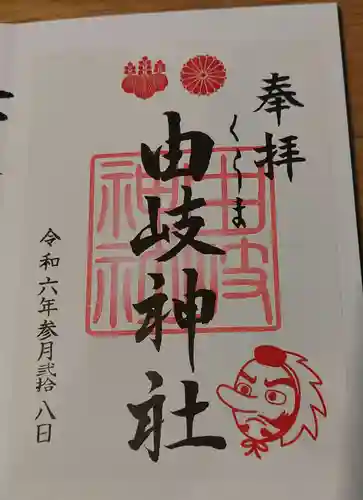 奉拝
くらま
由岐神社
由岐
神社
令和六年参月弐拾八日